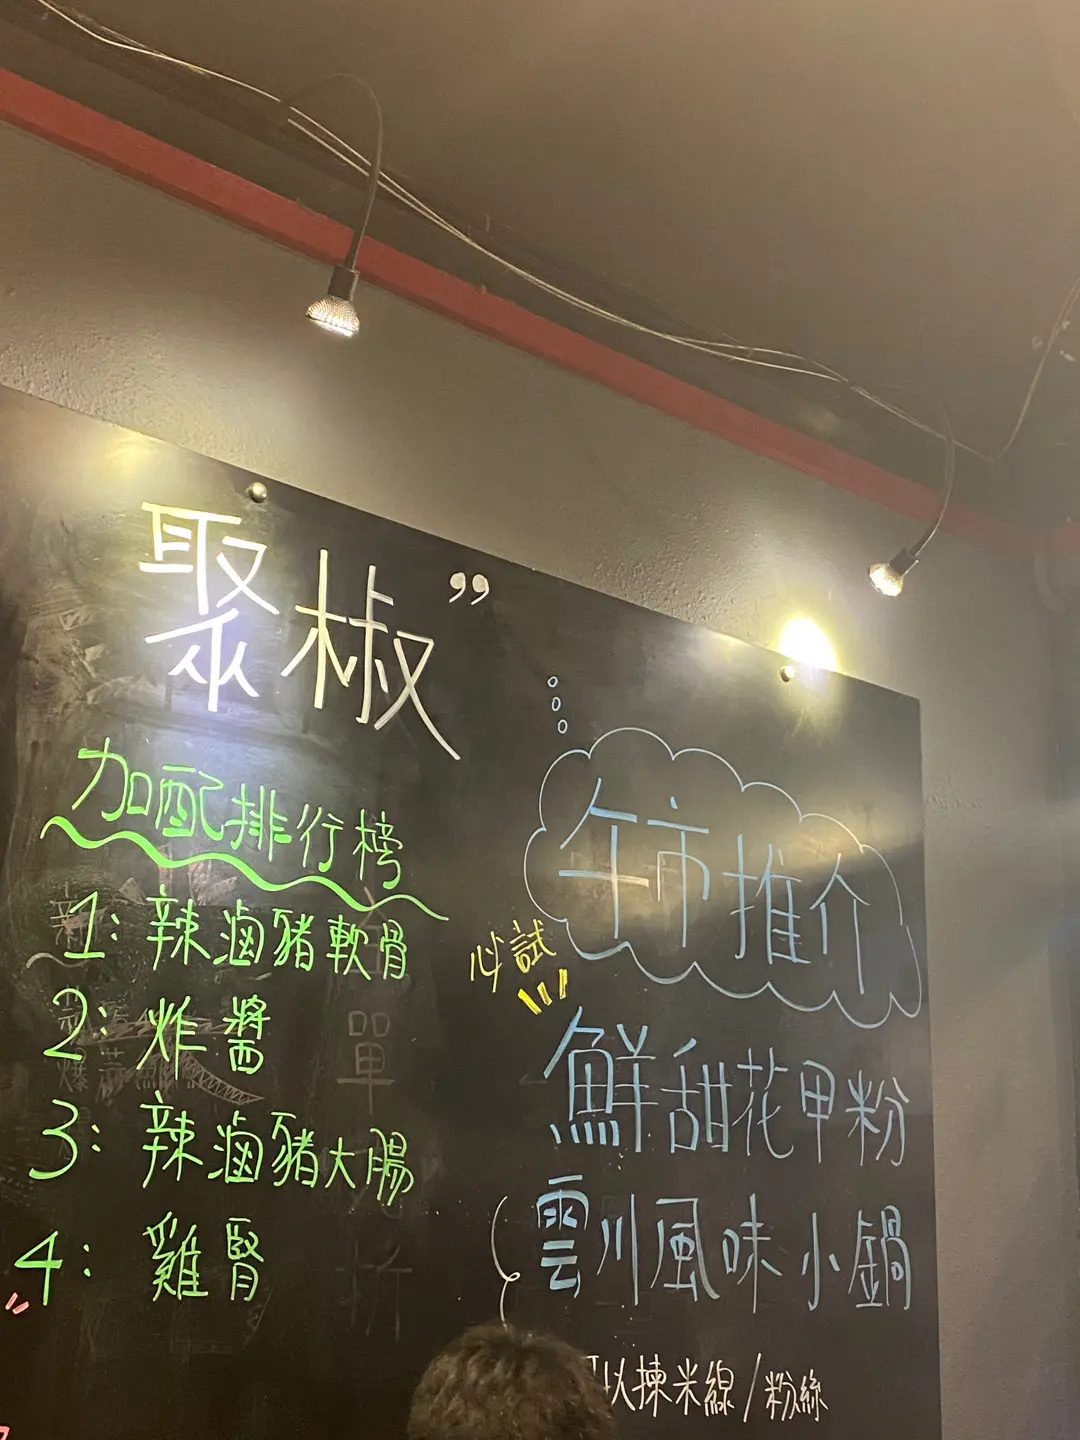 聚椒”
加配排行榜
1: 辣滷豬軟骨
2: 炸醬
3: 辣滷豬大腸
4: 雞腎
午市推介
必試
鮮甜花甲粉
雲川風味小鍋
以揀米線/粉絲